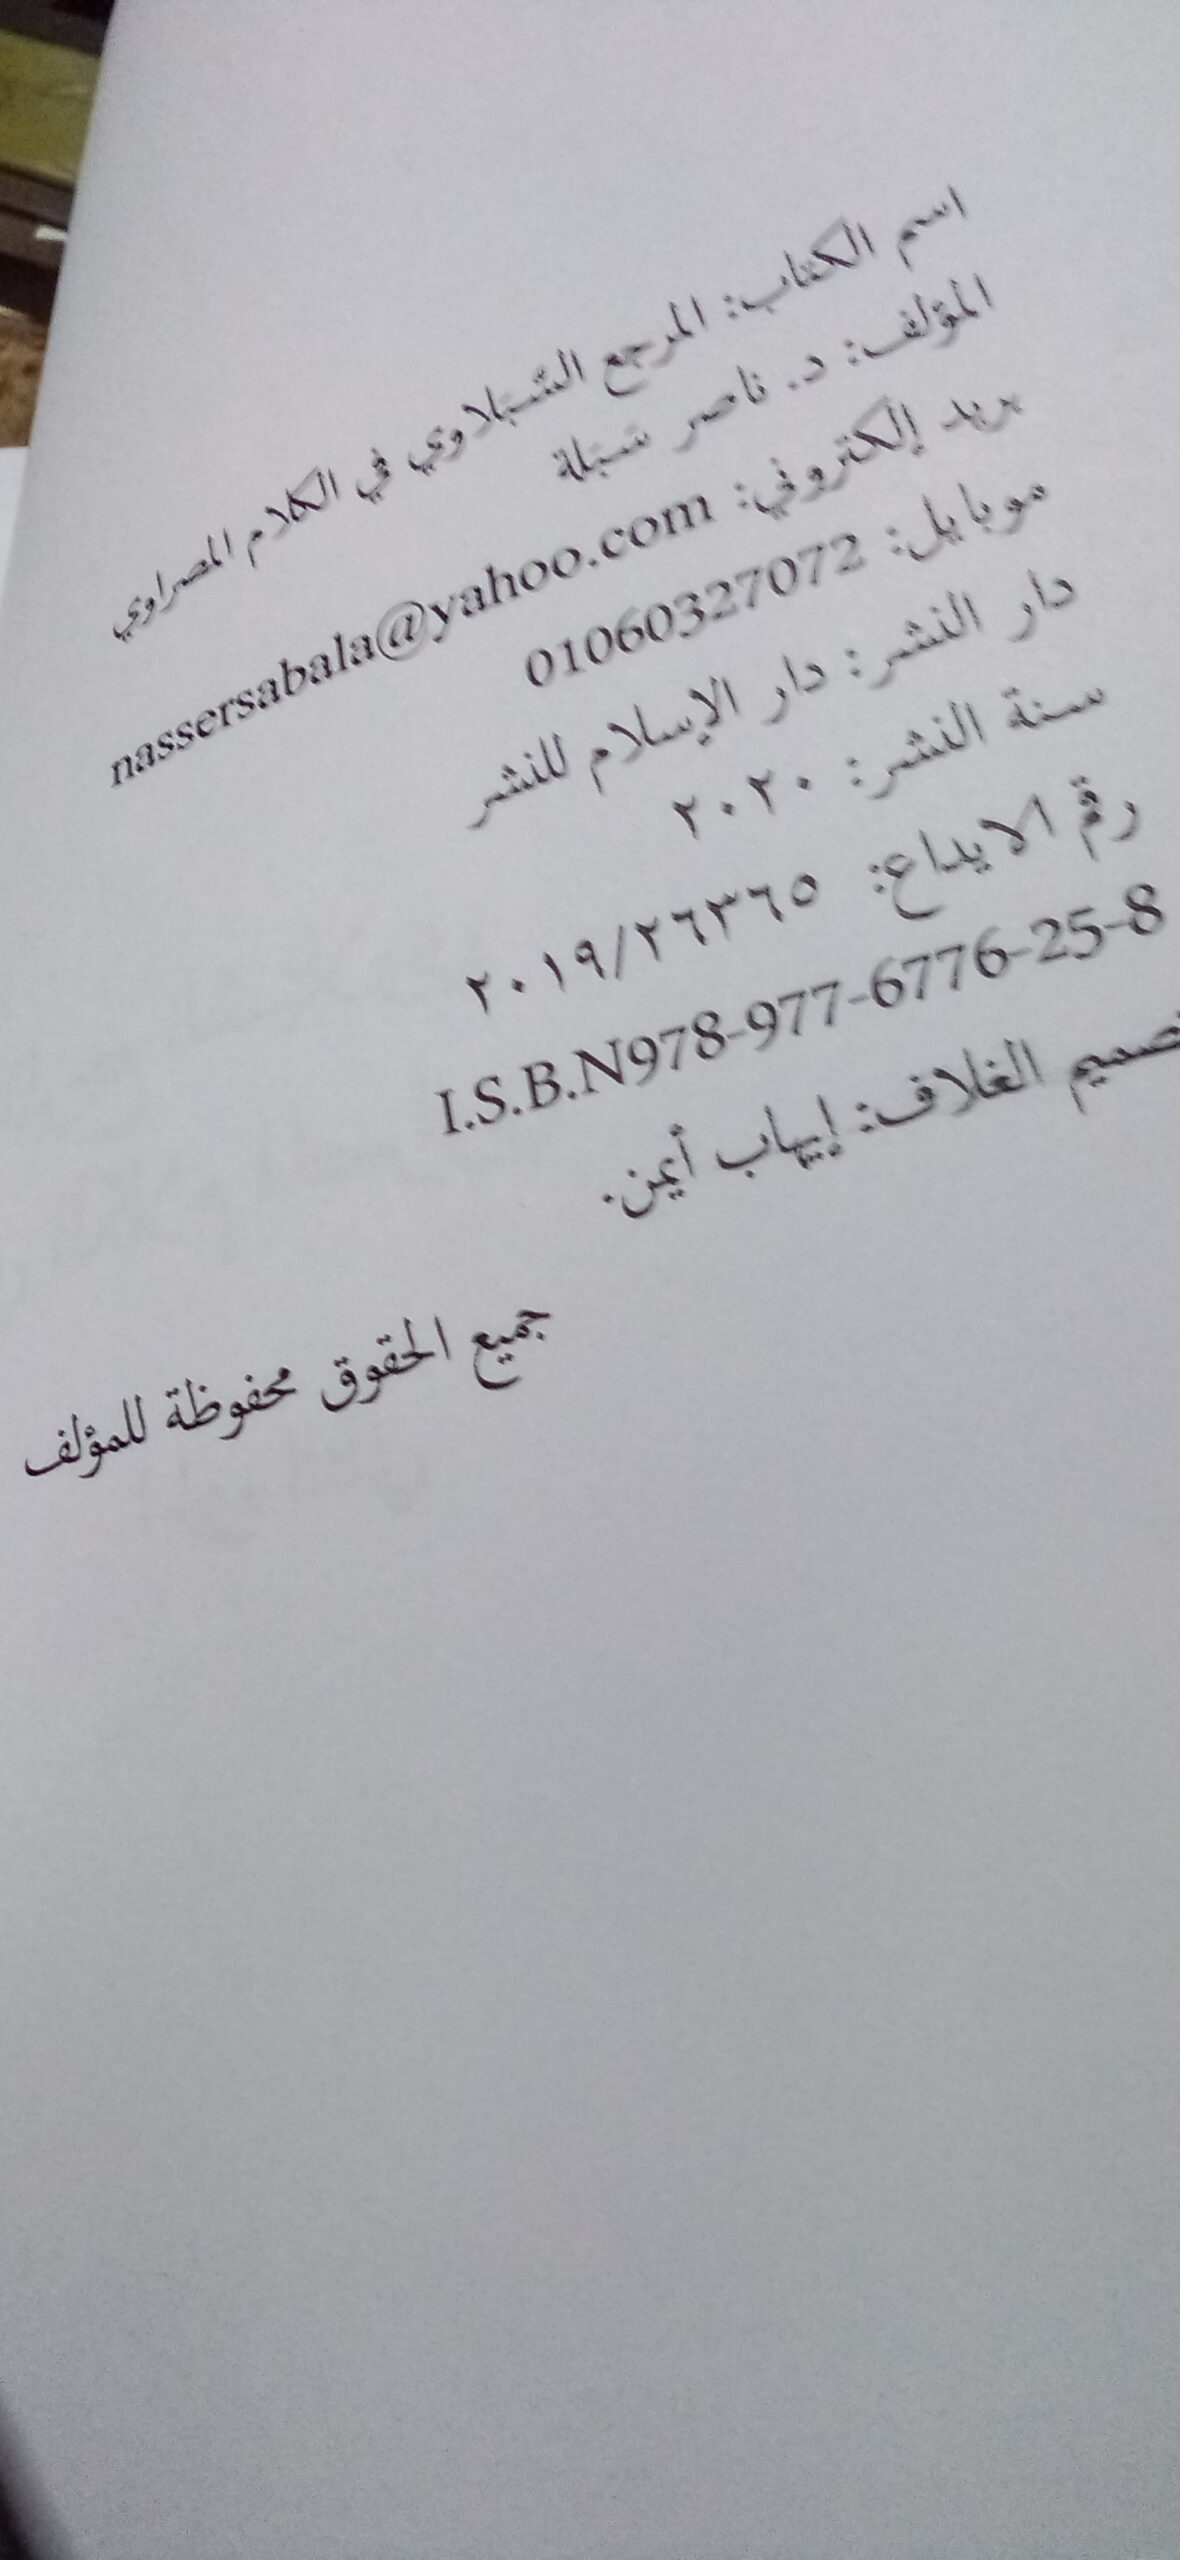 اسم الكتاب: المرجع السَّبَلاوي في الكلام المصراوي
المؤلف: د. ناصر سَبَلة
بريد إلكتروني: nassersabala@yahoo.com
موبايل: 01060327072
دار النشر: دار الإسلام للنشر
سنة النشر: ٢٠٢٠
رقم الايداع: ٢٠١٩/٢٦٣٦٥
I.S.B.N978-977-6776-25-8
تصميم الغلاف: إيهاب أيمن.
جميع الحقوق محفوظة للمؤلف